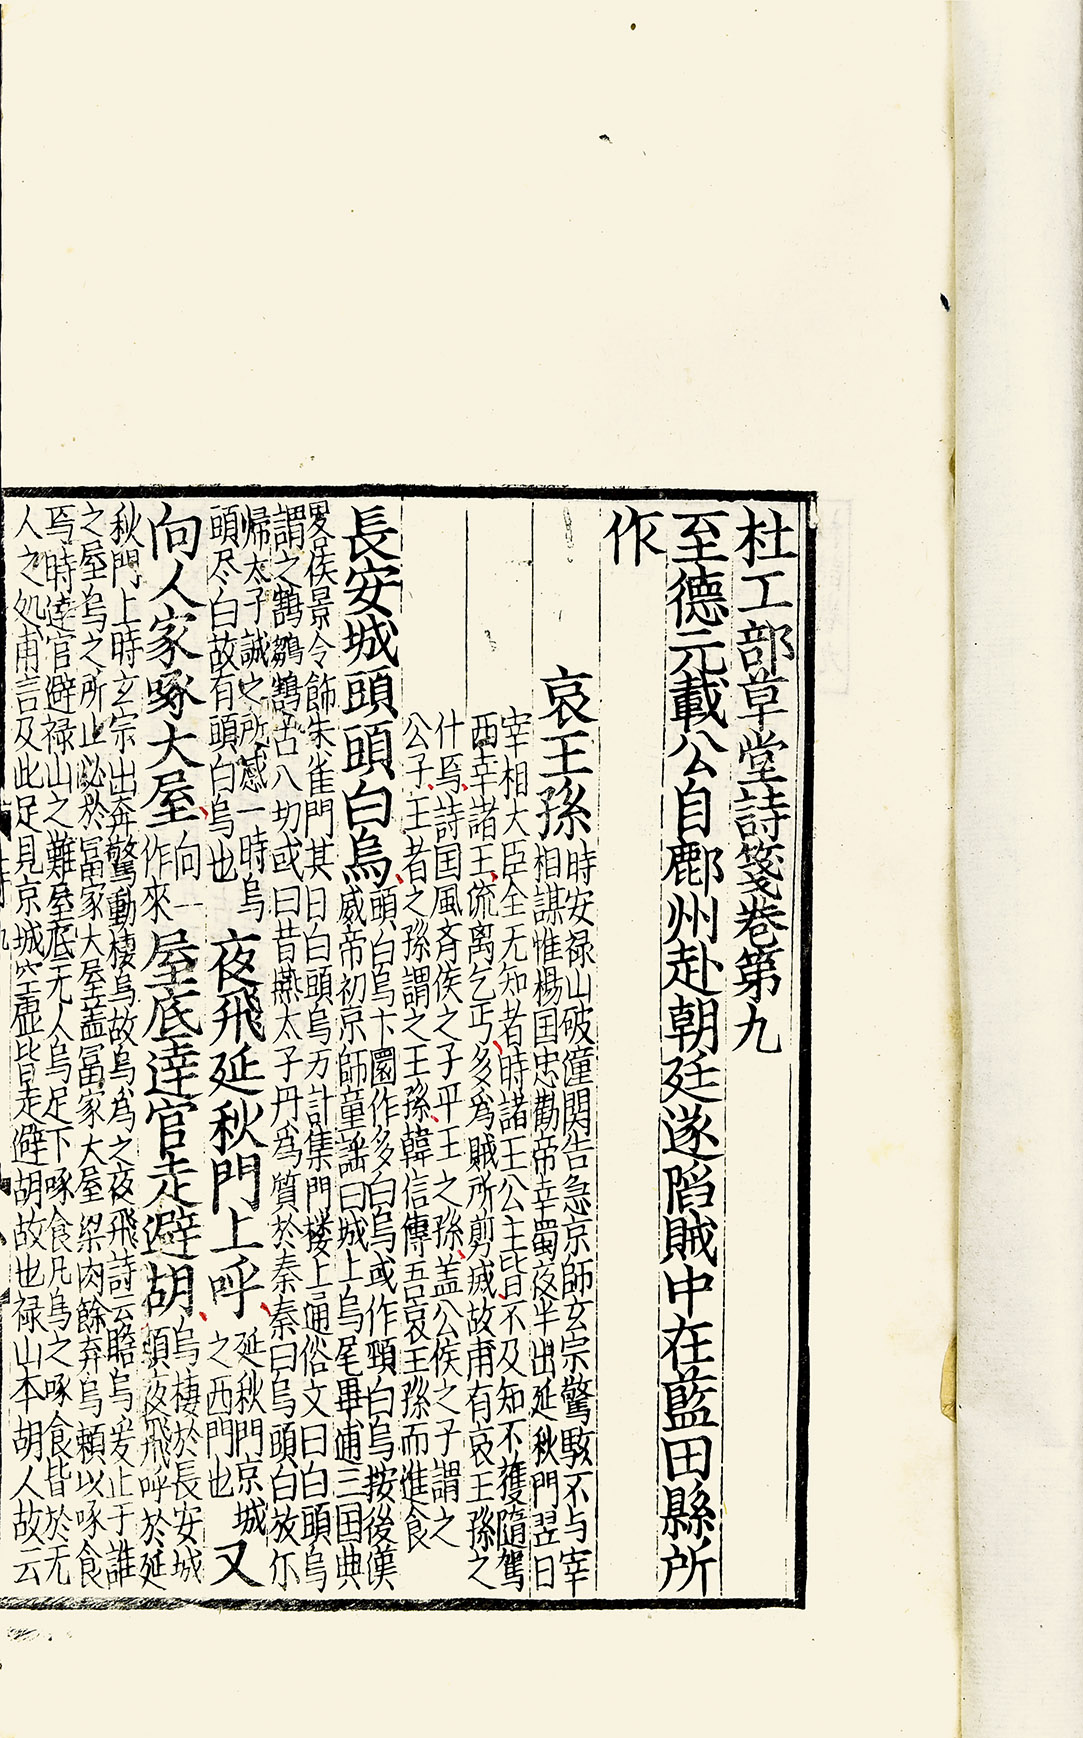 杜工部草堂詩箋卷第九
至德元載公自鄜州赴朝廷遂䧟賊中在藍田縣所
作
哀王孫
時安禄山破潼関告急京師玄宗驚駭不与宰
相謀惟楊国忠勸帝幸蜀夜半出延秋門翌日
宰相大臣全无知者時諸王公主皆不及知不獲隨駕
西幸諸王流离乞丐多為賊所剪㓕故甫有哀王孫之
什焉詩国風斉侯之子平王之孫盖公侯之子謂之
公子王者之孫謂之王孫韓信傳吾哀王孫而進食
長安城頭頭白烏
頭白烏卞圜作多白烏或作頸白烏按後漢
威帝初京師童謡曰城上烏尾畢逋三国典
畧侯景令飾朱雀門其日白頭烏万計集門楼上通俗文曰白頭烏
謂之鶷鶷古八切或曰昔燕太子丹為質於秦秦曰烏頭白放尓
帰太子誠之所感一時烏
頭尽白故有頭白烏也
夜飛延秋門上呼
延秋門京城
之西門也
又
向人家啄大屋
向一
作來
屋底達官走避胡
烏棲於長安城
頭夜飛呼於延
秋門上時玄宗出奔驚動棲烏故烏為之夜飛詩云瞻烏爰止于誰
之屋烏之所止必於冨家大屋盖冨家大屋梁肉餘弃烏頼以啄食
焉時達官避禄山之難屋底无人烏足下啄食凡烏之啄食皆於无
人之処甫言及此足見京城空虚皆走避胡故也禄山本胡人故云